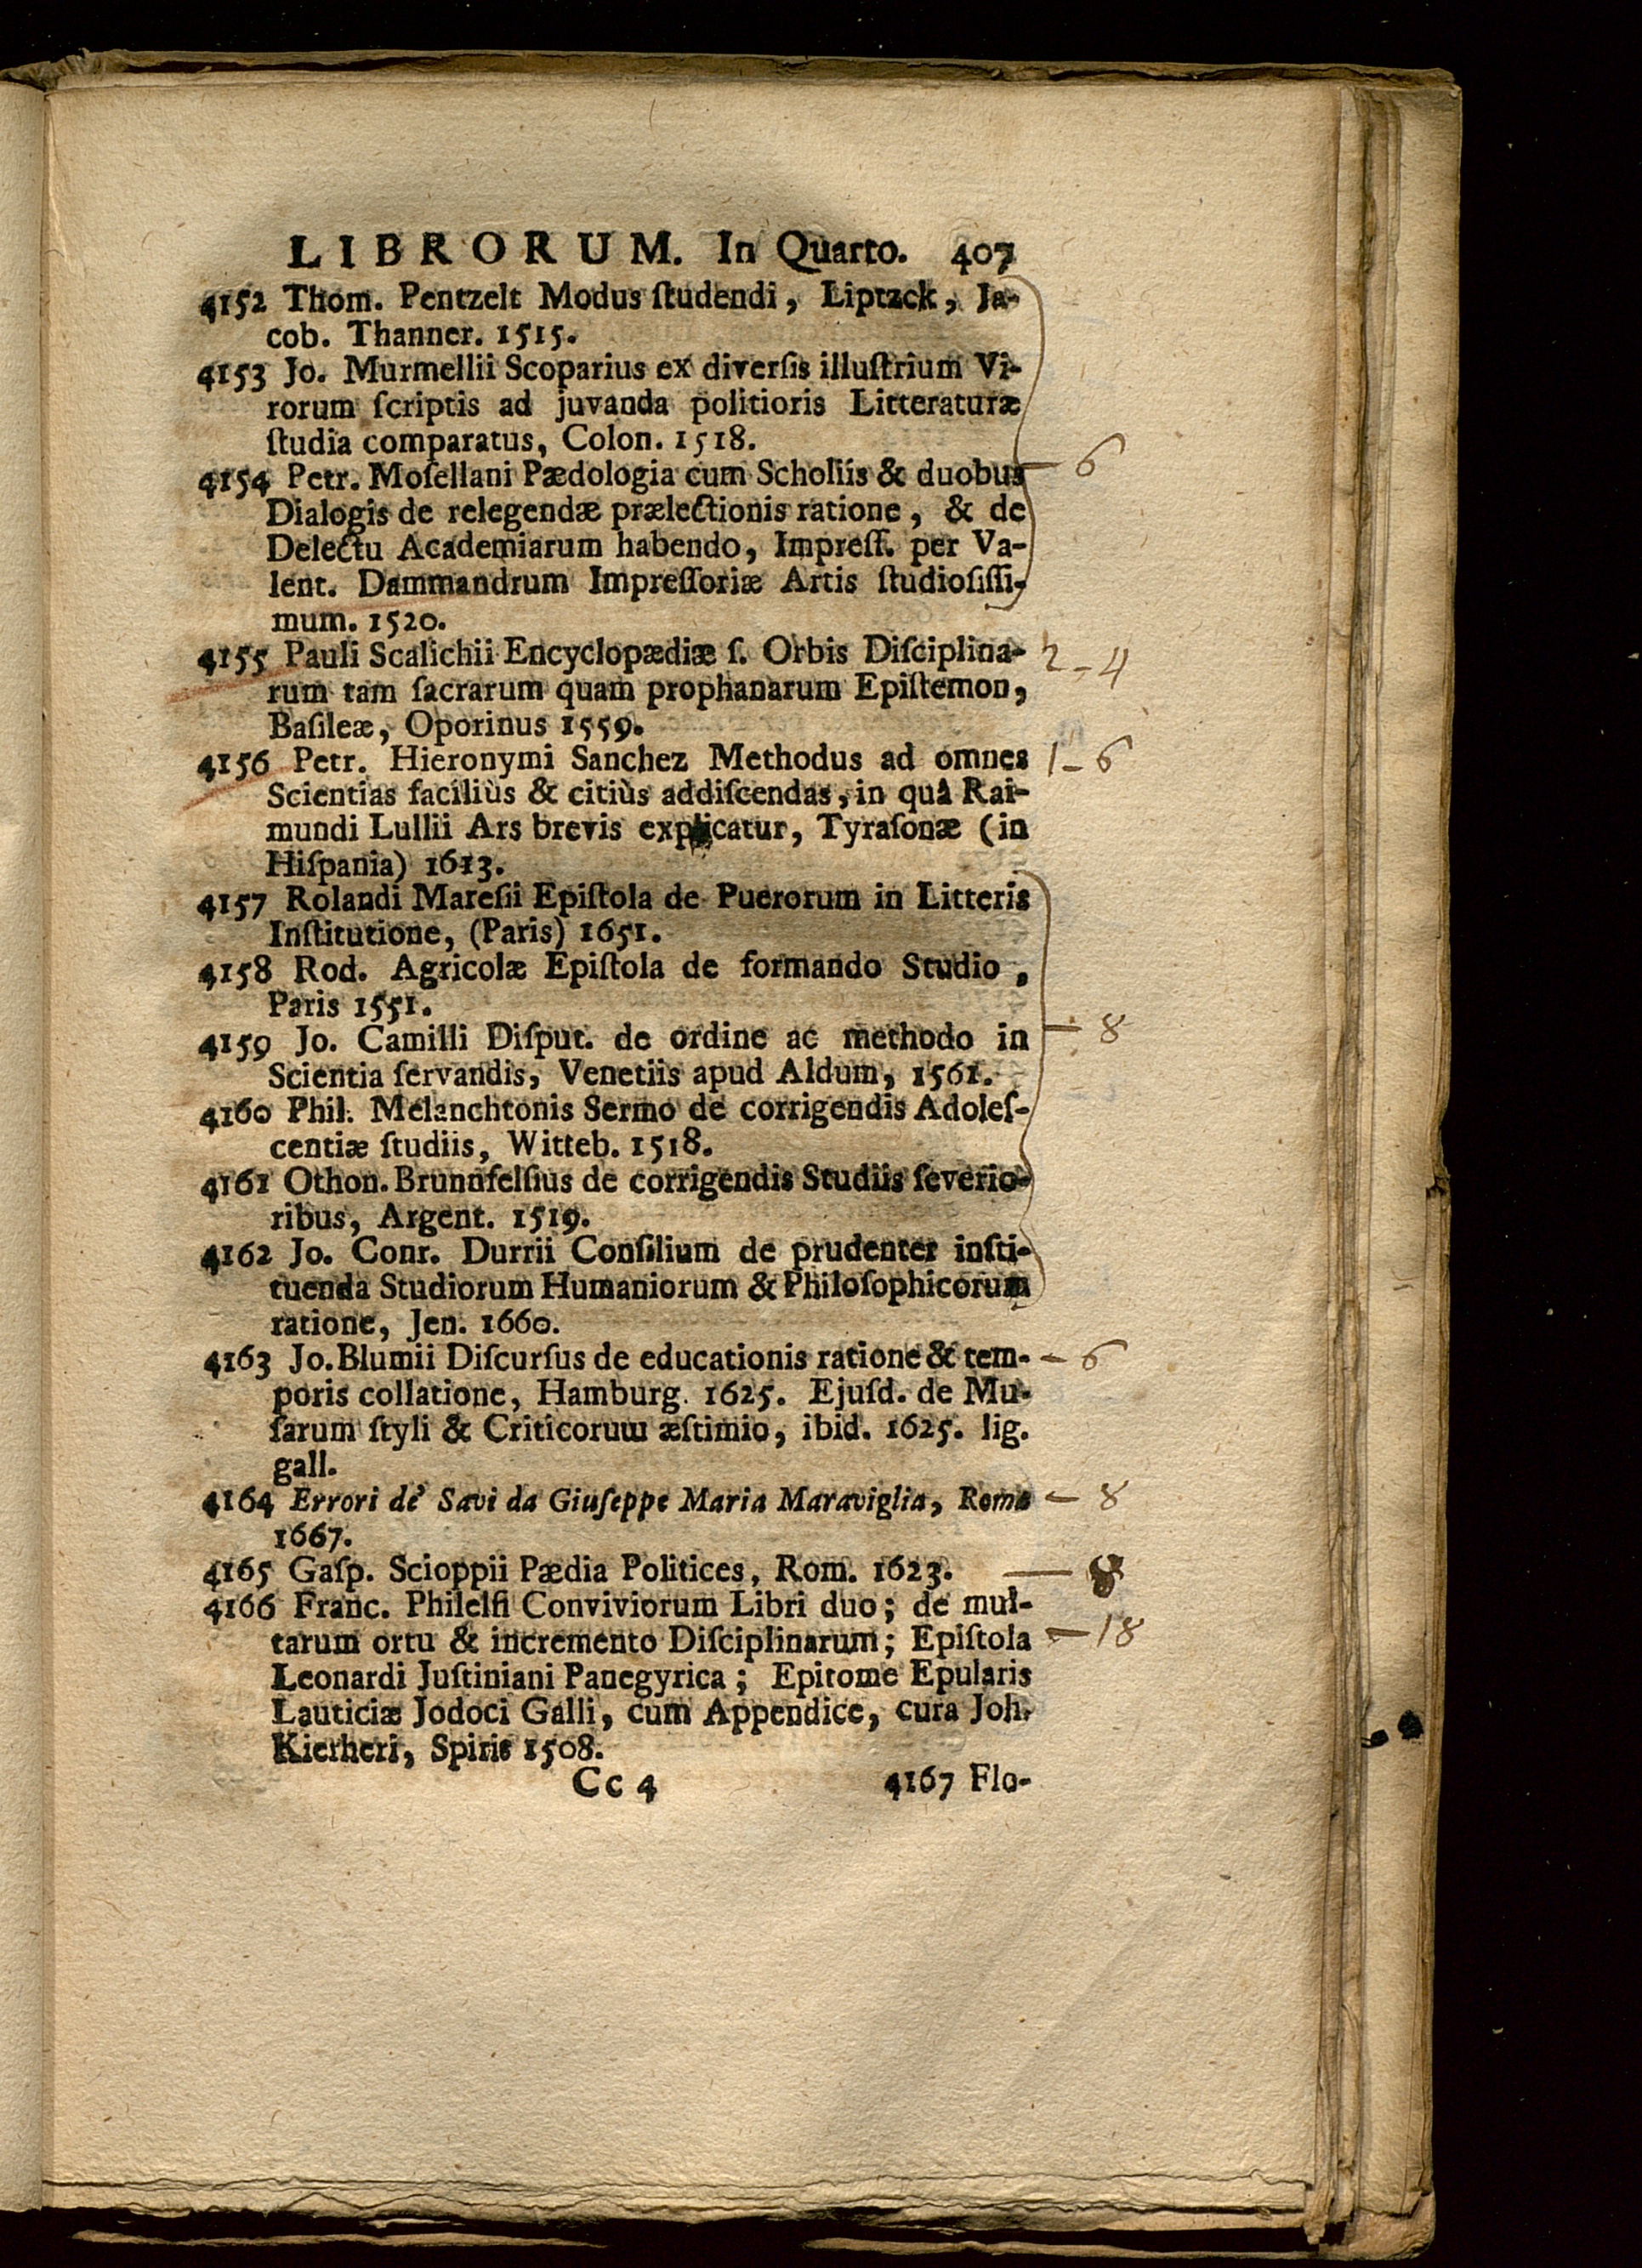 LIBRORUM. In Quarto. 407
4152 Thom. Pentzelt Modus ſtudendi, Liptzck, Ja-
cob. Thanner. 1515.
4153 Jo. Murmellii Scoparius ex diverſis illuſtrium Vi-
rorum ſcriptis ad juvanda politioris Litteraturæ
ſtudia comparatus, Colon. 1518.
4154 Petr. Moſellani Pædologia cum Scholiis & duobus — 6
Dialogis de relegendæ prælectionis ratione, & de
Delectu Academiarum habendo, Impreſſ. per Va-
lent. Dammandrum Impreſſoriæ Artis ſtudioſiſſi-
mum. 1520.
4155 Pauli Scalichii Encyclopædiæ ſ. Orbis Diſciplina- 2 - 4
rum tam ſacrarum quam prophanarum Epiſtemon,
Baſileæ, Oporinus 1559.
4156 Petr. Hieronymi Sanchez Methodus ad omnes 1 - 6
Scientias faciliùs & citiùs addiſcendas, in quâ Rai-
mundi Lullii Ars brevis explicatur, Tyraſonæ (in
Hiſpania) 1613.
4157 Rolandi Mareſii Epiſtola de Puerorum in Litteris
Inſtitutione, (Paris) 1651.
4158 Rod. Agricolæ Epiſtola de formando Studio,
Paris 1551.
4159 Jo. Camilli Diſput. de ordine ac methodo in — 8
Scientia ſervandis, Venetiis apud Aldum, 1561.
4160 Phil. Melanchtonis Sermo de corrigendis Adoleſ-
centiæ ſtudiis, Witteb. 1518.
4161 Othon. Brunnfelſius de corrigendis Studiis ſeverio-
ribus, Argent. 1519.
4162 Jo. Conr. Durrii Conſilium de prudenter inſti-
tuenda Studiorum Humaniorum & Philoſophicorum
ratione, Jen. 1660.
4163 Jo. Blumii Diſcurſus de educationis ratione & tem- - 6
poris collatione, Hamburg. 1625. Ejuſd. de Mu-
ſarum ſtyli & Criticorum æſtimio, ibid. 1625. lig.
gall.
4164 Errori de' Savi da Giuſeppe Maria Maraviglia, Roma — 8
1667.
4165 Gaſp. Scioppii Pædia Politices, Rom. 1623. — 8
4166 Franc. Philelfi Conviviorum Libri duo; de mul-
tarum ortu & incremento Diſciplinarum; Epiſtola — 18
Leonardi Juſtiniani Panegyrica; Epitome Epularis
Lauticiæ Jodoci Galli, cum Appendice, cura Joh.
Kierheri, Spiris 1508.
Cc 4 4167 Flo-